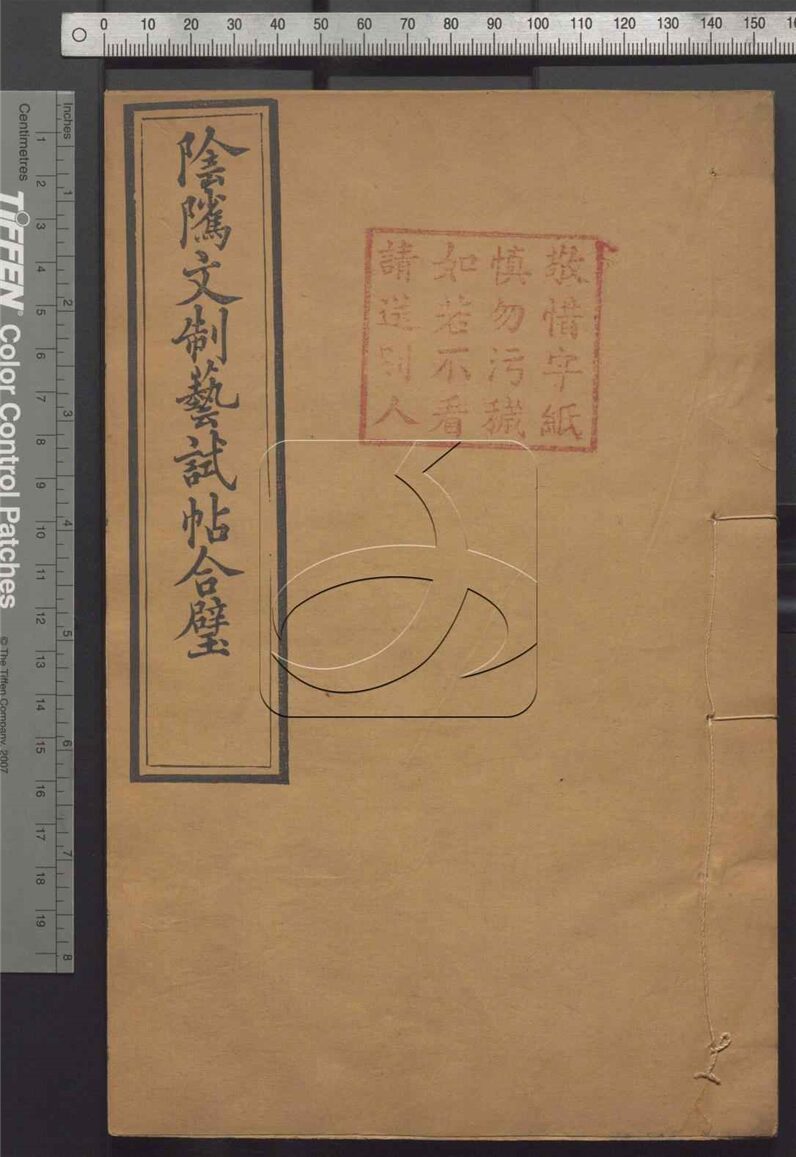 0 10 20 30 40 50 60 70 80 90 100 110 120 130 140 150
陰隲文制藝試帖合璧
敬惜字紙
慎勿污穢
如若不看
請送別人
Inches
1 2 3 4 5 6 7 8
Centimetres
1 2 3 4 5 6 7 8 9 10 11 12 13 14 15 16 17 18 19
TIFFEN® Color Control Patches
© The Tiffen Company, 2007